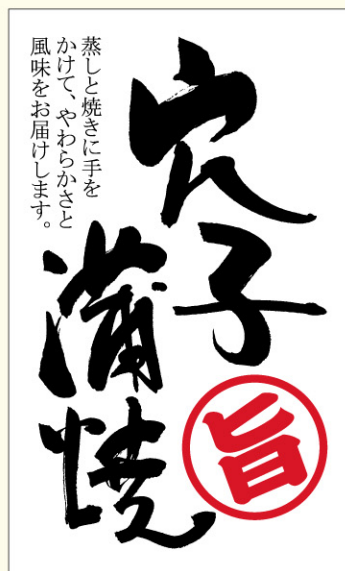 穴子
蒲焼
旨
蒸しと焼きに手を
かけて、やわらかさと
風味をお届けします。